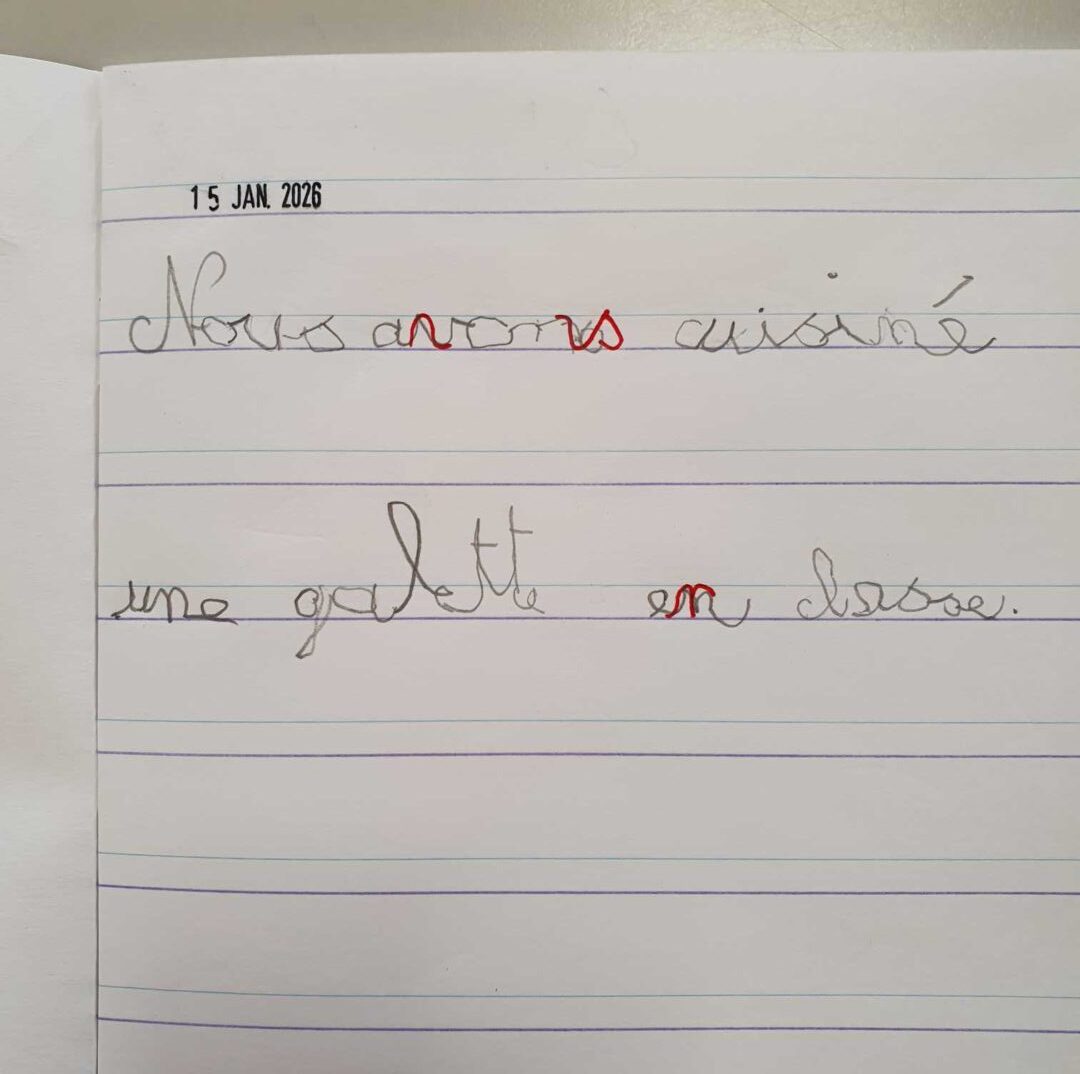 15 JAN. 2026
Nous avons cuisiné
une galette en classe.